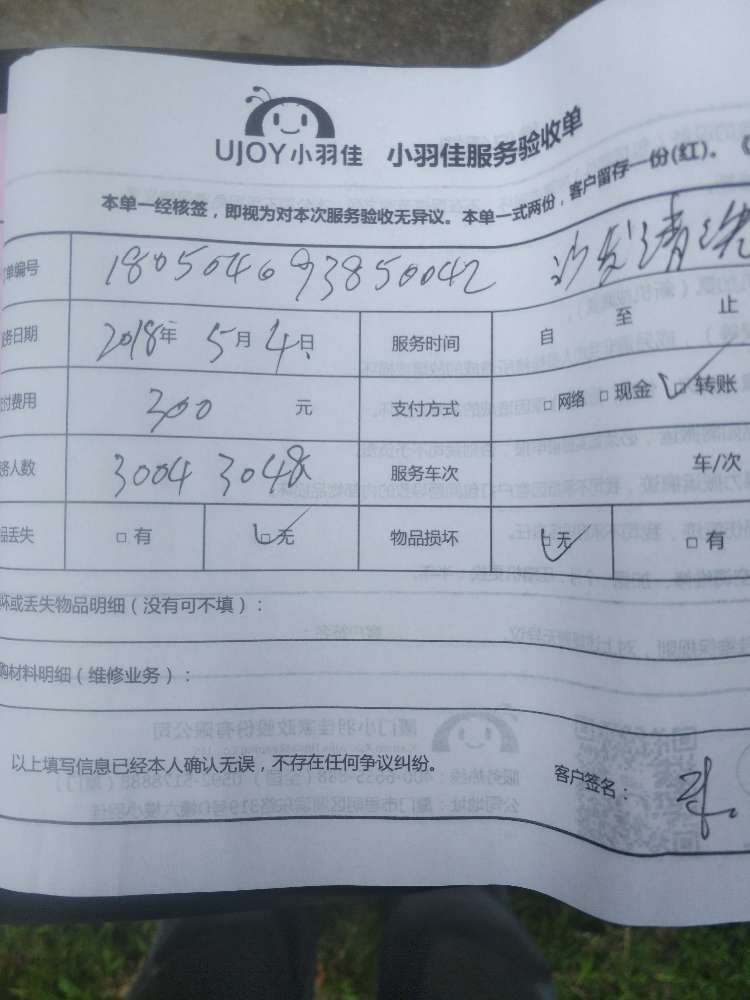 UJOY小羽佳 小羽佳服务验收单
本单一经核签，即视为对本次服务验收无异议。本单一式两份，客户留存一份(红)。
单编号 180504693850042 沙发清洗
务日期 2018年 5月4日 服务时间 自 至 止
付费用 300 元 支付方式 □网络 □现金 □转账
务人数 3004 3048 服务车次 车/次
品丢失 □有 □无 物品损坏 □无 □有
坏或丢失物品明细（没有可不填）：
购材料明细（维修业务）：
以上填写信息已经本人确认无误，不存在任何争议纠纷。
客户签名：